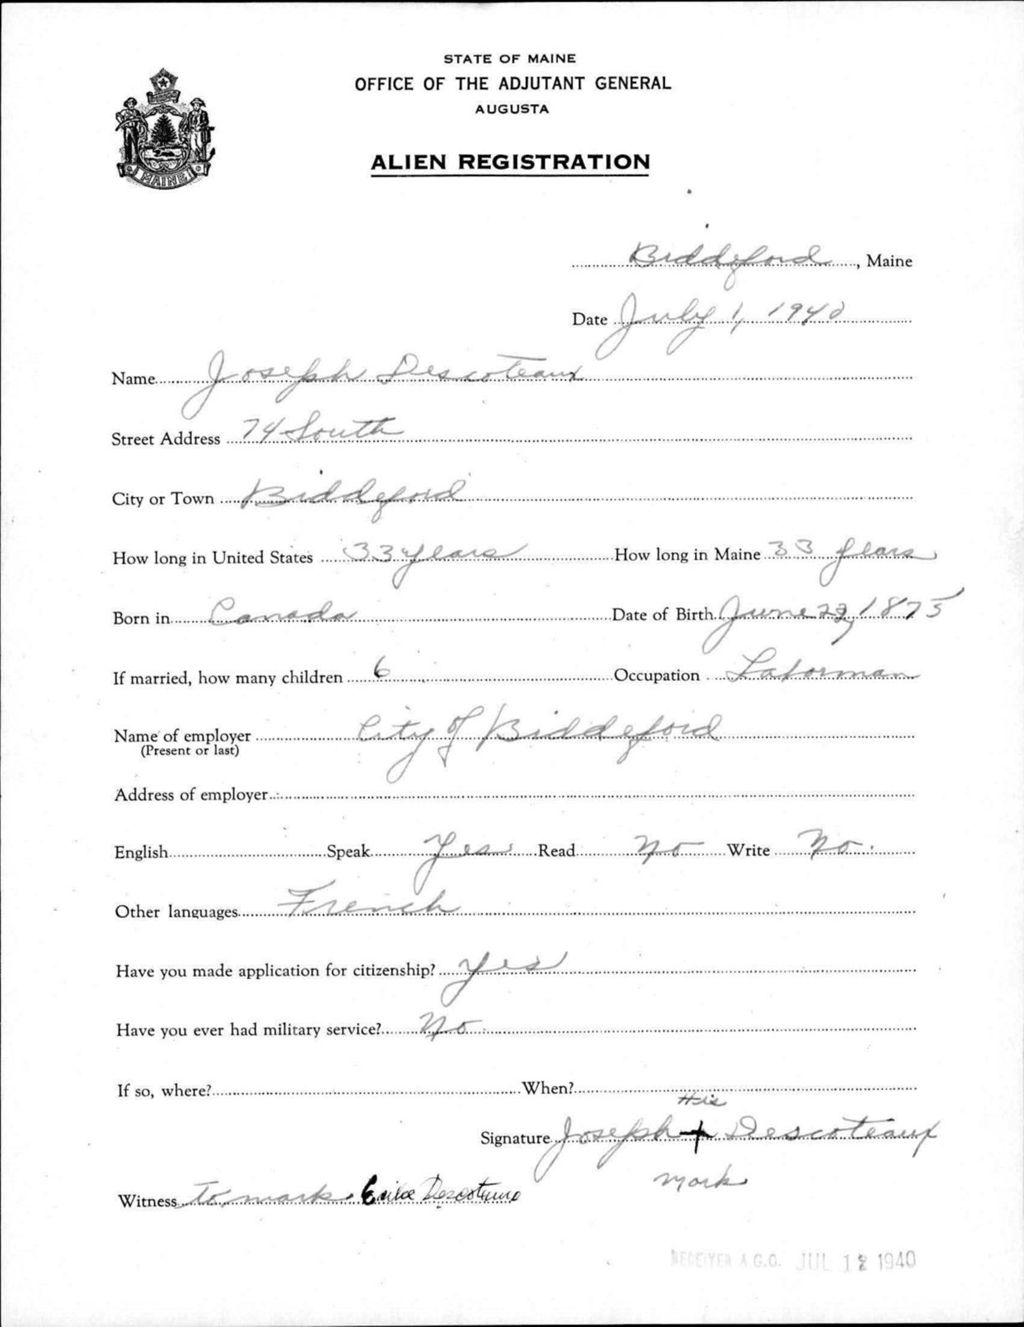 STATE OF MAINE
OFFICE OF THE ADJUTANT GENERAL
AUGUSTA
ALIEN REGISTRATION
MAINE
Biddeford, Maine
Date July 1, 1940
Name Joseph Descoteaux
Street Address 74 South
City or Town Biddeford
How long in United States 33 years How long in Maine 33 years
Born in Canada Date of Birth June 23, 1875
If married, how many children 6 Occupation Laborman
Name of employer City of Biddeford
(Present or last)
Address of employer
English Speak Yes Read No Write No.
Other languages French
Have you made application for citizenship? Yes
Have you ever had military service? No
If so, where? When?
His
Signature Joseph + Descoteaux
mark
Witness To mark. Descoteaux
RECEIVED A.G.O. JUL 12 1940